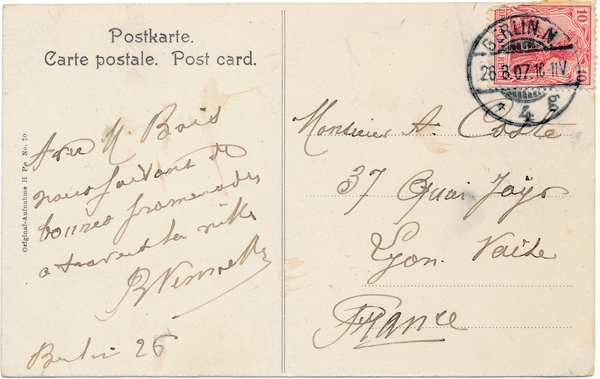 Postkarte.
Carte postale. Post card.
BERLIN, N.
26.8.07. 10-11V
4
10
10
Original-Aufnahme H Pe No. 70
Avec M. Bois
nous faisant de
bonnes promenades
a travers la ville
Berlin 26
Monsieur A. Coste
37 Quai Jayr
Lyon. Vaise
France